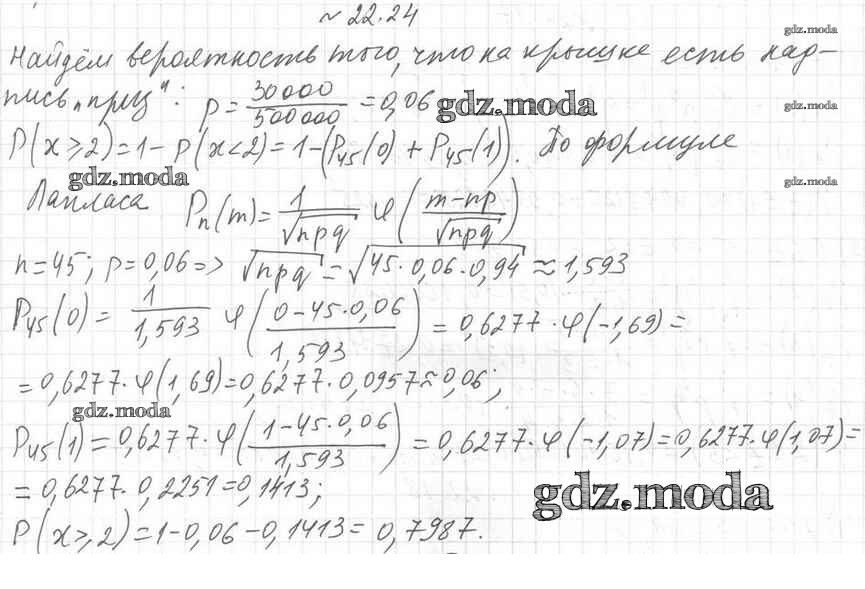 ~ 22.24
gdz.moda
Найдём вероятность того, что на крышке есть над-
пись „приз": p = 30000/500000 = 0,06 gdz.moda gdz.moda
P(x ≥ 2) = 1 - P(x < 2) = 1 - (P₄₅(0) + P₄₅(1)). По формуле
gdz.moda gdz.moda
Лапласа Pₙ(m) = 1/√npq φ((m-np)/√npq)
n = 45; p = 0,06 => √npq = √45·0,06·0,94 ≈ 1,593
P₄₅(0) = 1/1,593 φ((0-45·0,06)/1,593) = 0,6277·φ(-1,69) =
= 0,6277·φ(1,69) = 0,6277·0,0957 ≈ 0,06;
gdz.moda
P₄₅(1) = 0,6277·φ((1-45·0,06)/1,593) = 0,6277·φ(-1,07) = 0,6277·φ(1,07) =
= 0,6277·0,2251 = 0,1413;
gdz.moda
P(x ≥ 2) = 1 - 0,06 - 0,1413 = 0,7987.